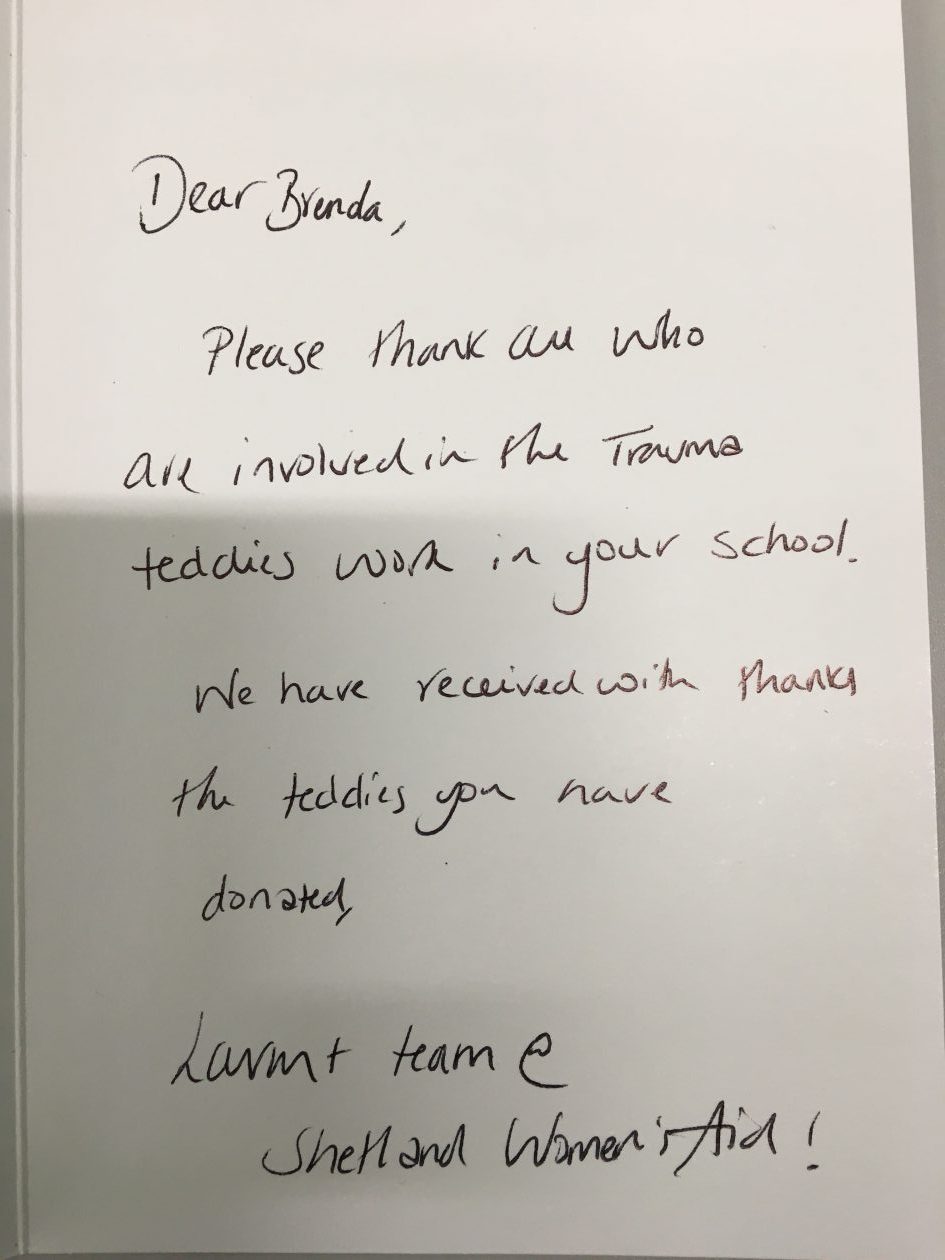 Dear Brenda,
Please thank all who
are involved in the Trauma
teddies work in your school.
We have received with thanks
the teddies you have
donated,
team @
Shetland Women's Aid!